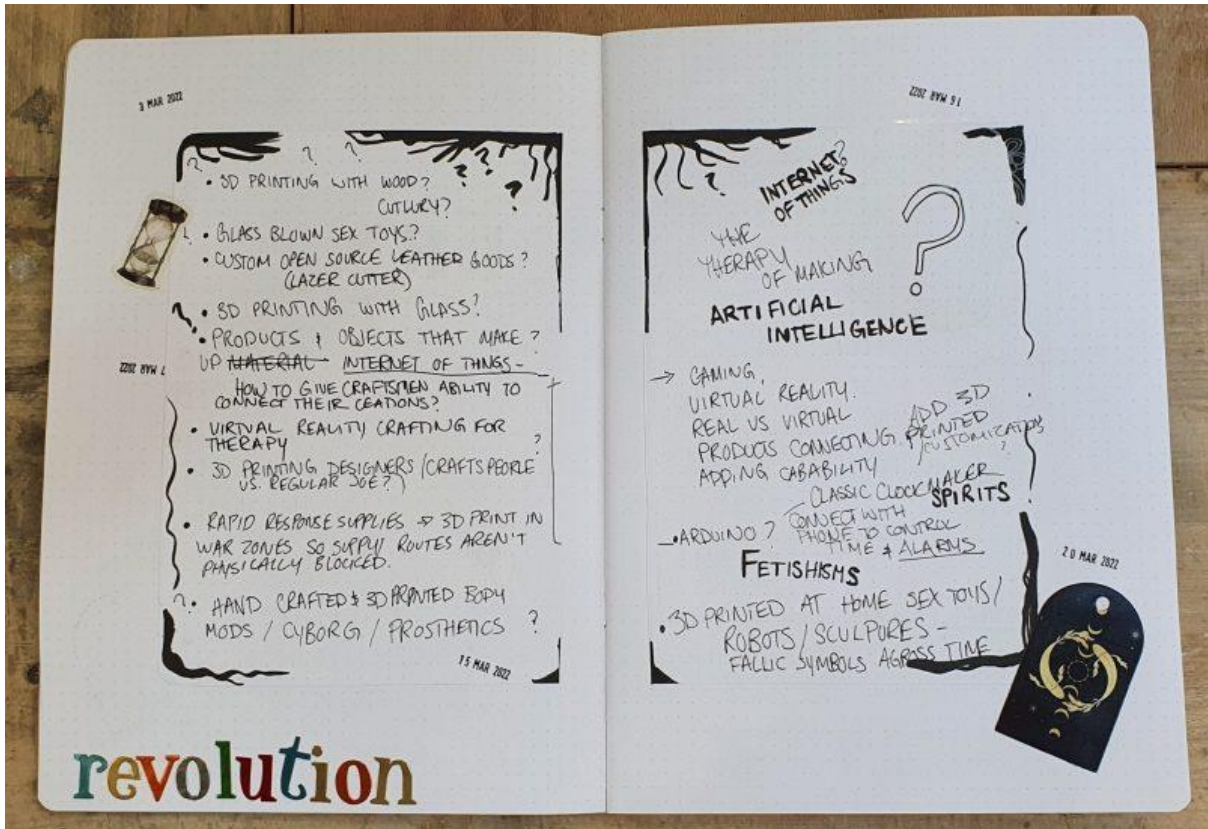 3 MAR 2022
? ? ?
• 3D PRINTING WITH WOOD?
CUTLURY?
• GLASS BLOWN SEX TOYS?
• CUSTOM OPEN SOURCE LEATHER GOODS?
(LAZER CUTTER)
• 3D PRINTING WITH GLASS?
• PRODUCTS & OBJECTS THAT MAKE ?
UP MATERIAL INTERNET OF THINGS -
HOW TO GIVE CRAFTSMEN ABILITY TO
CONNECT THEIR CEATIONS?
7 MAR 2022
• VIRTUAL REALITY CRAFTING FOR
THERAPY ?
• 3D PRINTING DESIGNERS / CRAFTS PEOPLE
VS. REGULAR JOE?)
• RAPID RESPONSE SUPPLIES → 3D PRINT IN
WAR ZONES SO SUPPLY ROUTES AREN'T
PHYSICALLY BLOCKED.
?• HAND CRAFTED & 3D PRINTED BODY
MODS / CYBORG / PROSTHETICS ?
15 MAR 2022
revolution
16 MAR 2022
INTERNET?
OF THINGS
?
THE
THERAPY
OF MAKING
ARTIFICIAL
INTELLIGENCE
→ GAMING,
VIRTUAL REALITY.
REAL VS VIRTUAL
PRODUCTS CONNECTING,
ADDING CABABILITY
ADD 3D
PRINTED
/CUSTOMIZATION
?
- CLASSIC CLOCKMAKER
CONNECT WITH
PHONE TO CONTROL
TIME & ALARMS
SPIRITS
• ARDUINO?
FETISHISMS
• 3D PRINTED AT HOME SEX TOYS/
ROBOTS / SCULPURES -
FALLIC SYMBOLS AGROSS TIME
20 MAR 2022